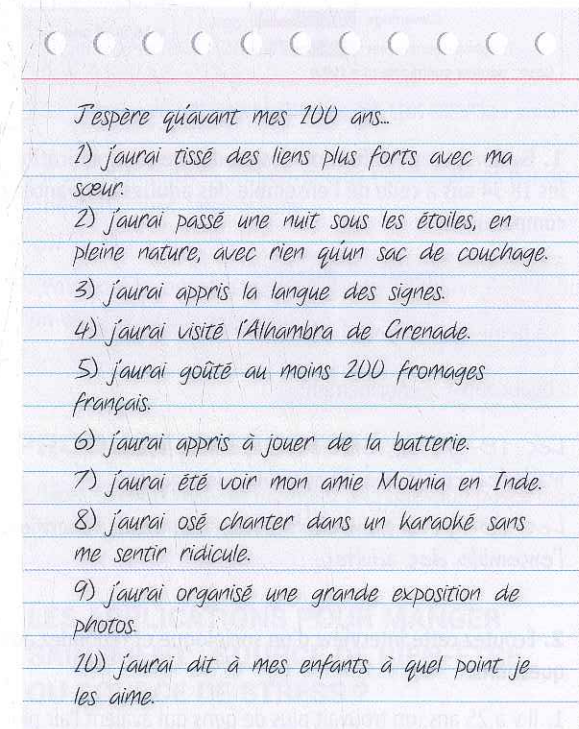 J'espère qu'avant mes 100 ans...
1) j'aurai tissé des liens plus forts avec ma
sœur.
2) j'aurai passé une nuit sous les étoiles, en
pleine nature, avec rien qu'un sac de couchage.
3) j'aurai appris la langue des signes.
4) j'aurai visité l'Alhambra de Grenade.
5) j'aurai goûté au moins 200 fromages
français.
6) j'aurai appris à jouer de la batterie.
7) j'aurai été voir mon amie Mounia en Inde.
8) j'aurai osé chanter dans un karaoké sans
me sentir ridicule.
9) j'aurai organisé une grande exposition de
photos.
10) j'aurai dit à mes enfants à quel point je
les aime.